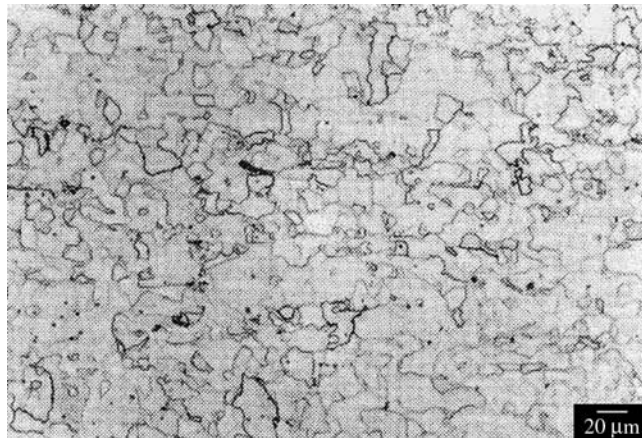 20 µm